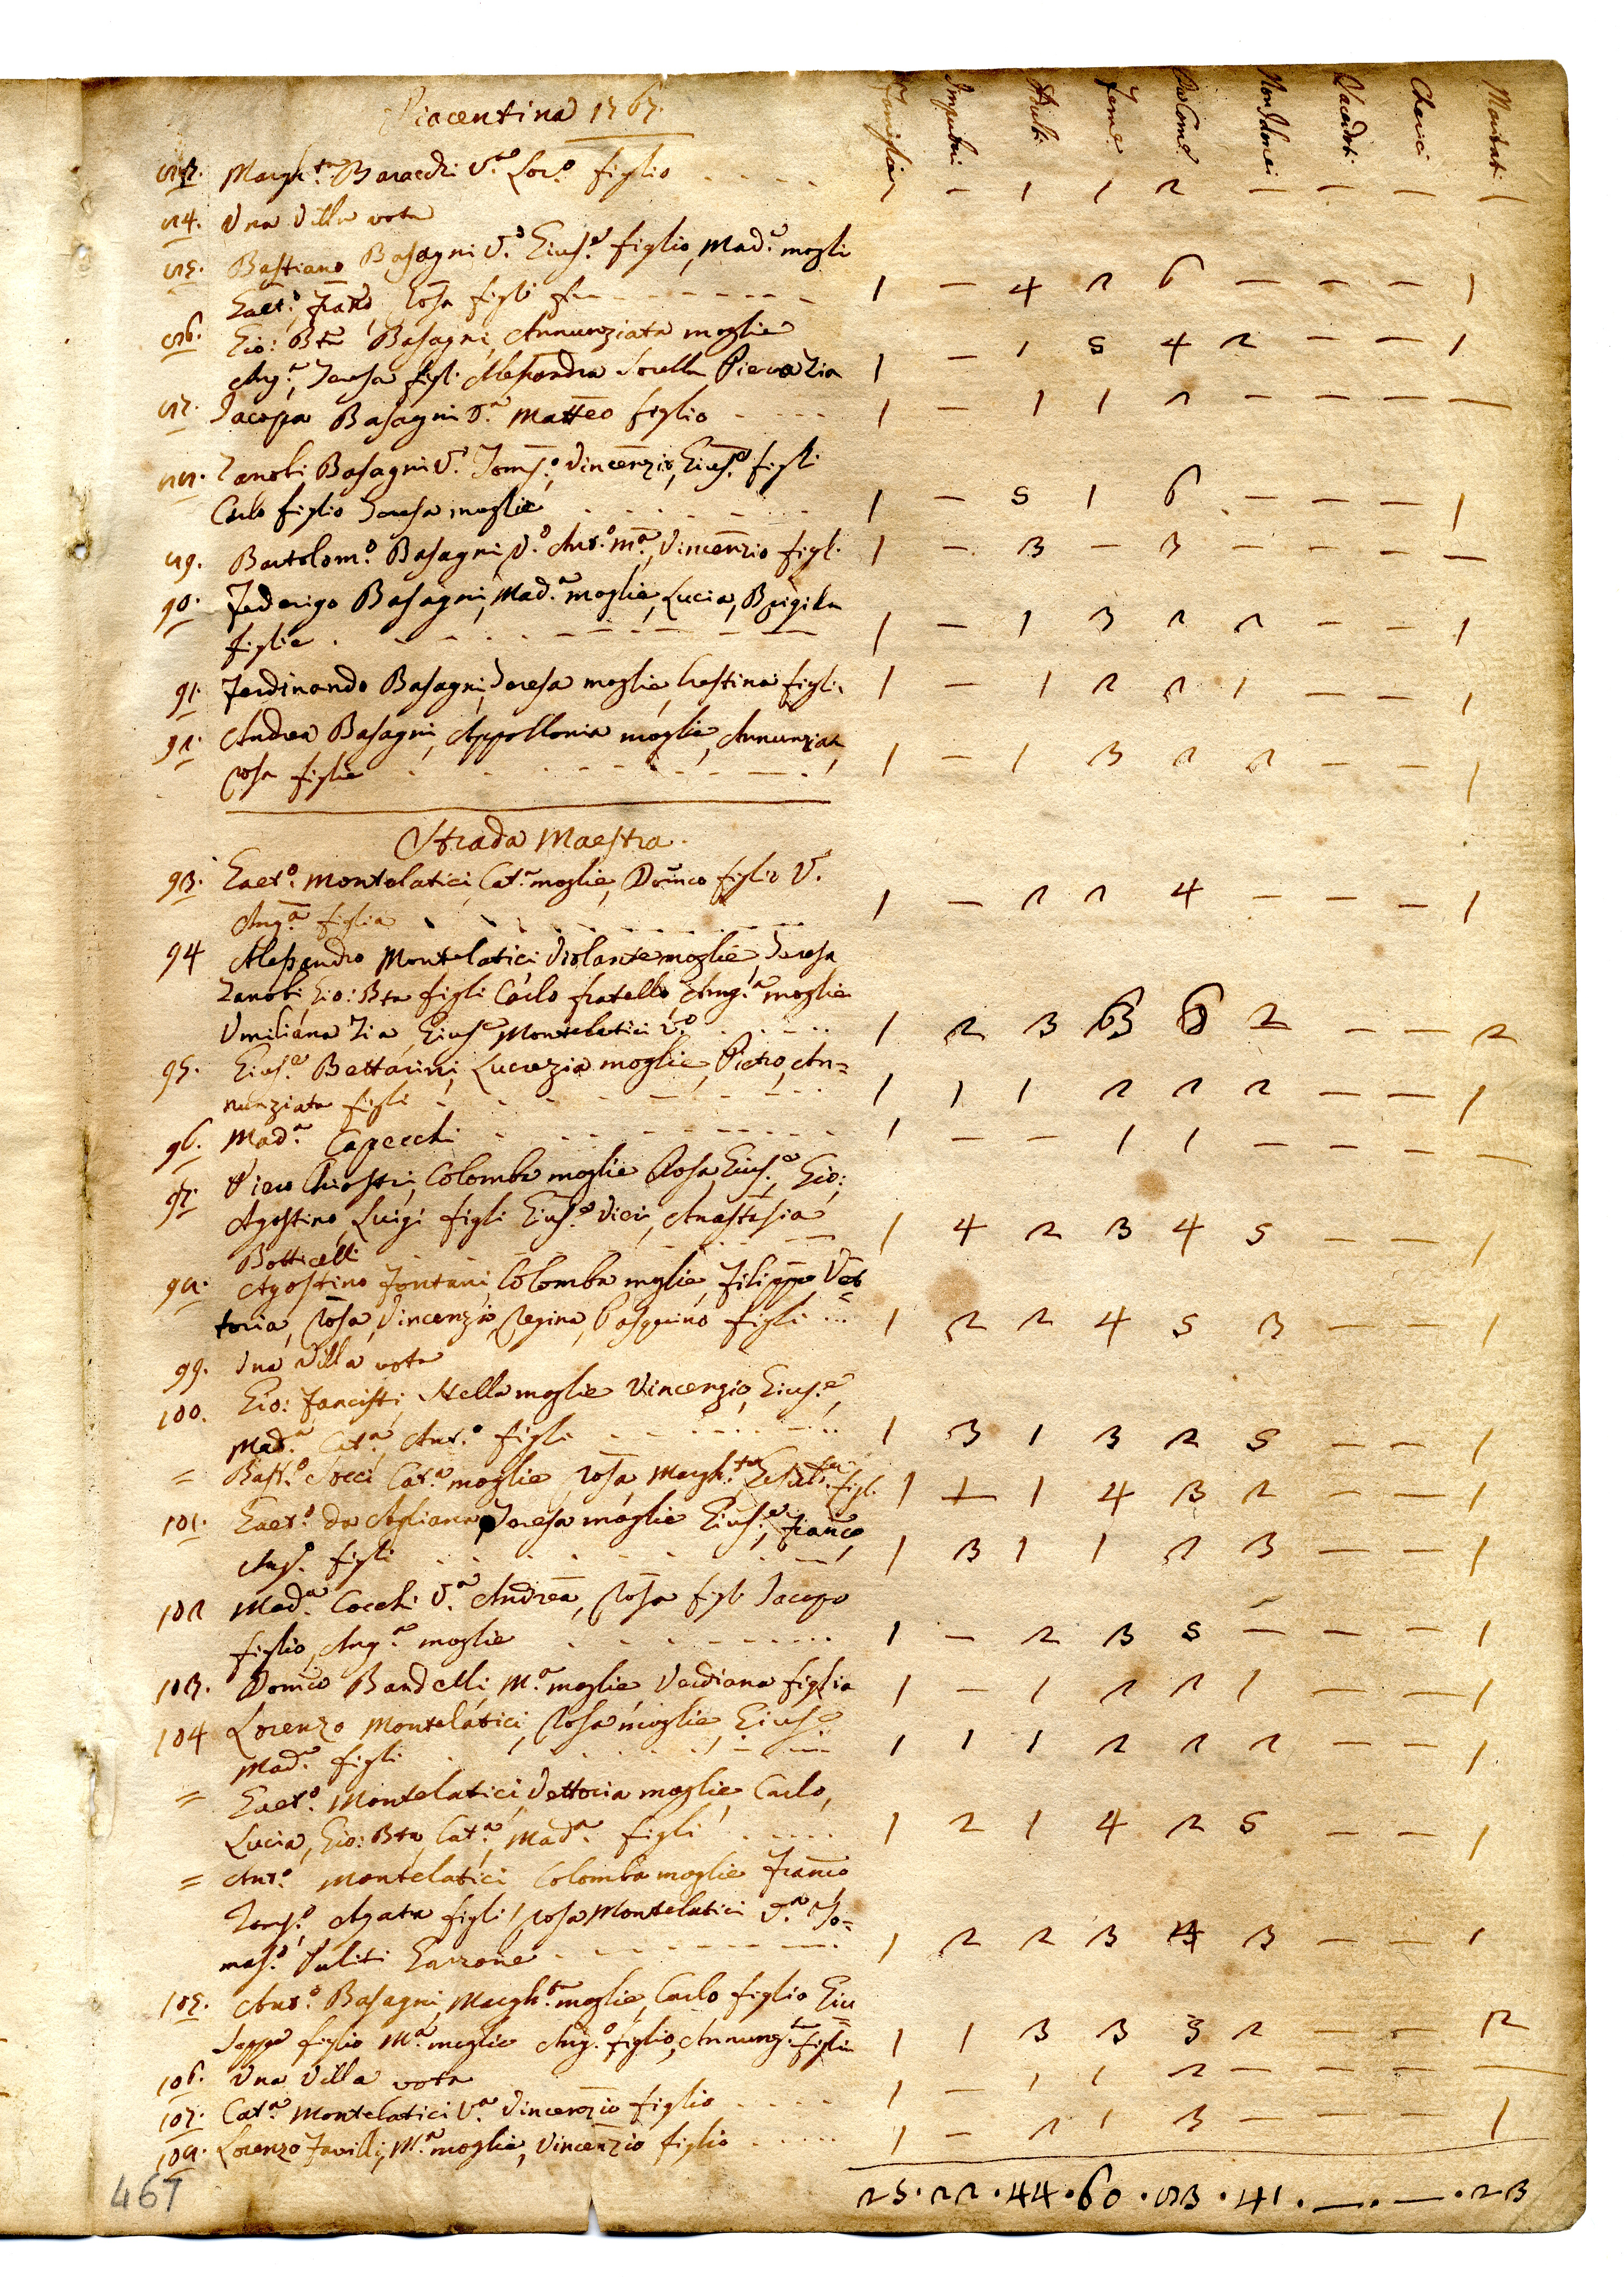 Piacentina 1767.
Famiglie Impuberi Adulti Feme DaCome NonIdonei Sacerdoti Cherici Maritati
83. Margh.ta Baracchi V.a Lor.o figlio . . . . 1 — 1 1 2 — — — —
84. Una Villa vota
85. Bastiano Basagni V.o Gius.e figlio, Mad.a mogli
Gaet.o Franc.o, Rosa figli - - - - - - - 1 — 4 2 6 — — — 1
86. Gio: Bta Basagni, Annunziata moglie
Ang.a, Teresa figl. Alessandra Sorella Piera Zia 1 — 1 5 4 2 — — 1
87. Jacopa Basagni V.a Matteo figlio - - - - 1 — 1 1 2 — — — —
88. Zanobi Basagni V.o Tom.o, Vincenzio, Gius.e figli
Carlo figlio Teresa moglie - - - - - - 1 — 5 1 6 — — — 1
89. Bartolom.o Basagni V.o Ant.o M.a, Vincenzio figl. 1 — 3 — 3 — — — —
90. Federigo Basagni, Mad.a moglie, Lucia, Brigida
figlie . - - - - - - - - 1 — 1 3 2 2 — — 1
91. Ferdinando Basagni, Teresa moglie, Crestina figli. 1 — 1 2 2 1 — — 1
92. Andrea Basagni, Appollonia moglie, Annunziata
Rosa figlie . - - - - - - - - 1 — 1 3 2 2 — — 1
Strada Maestra.
93. Gaet.o Montelatici, Cat.a moglie, Dom.co figlio V.
Ang.a figlia - - - - - - - 1 — 2 2 4 — — — 1
94 Alessandro Montelatici Violante moglie, Teresa
Zanobi, Gio: Bta figli Carlo fratello Ang.a moglie
Umiliana Zia, Gius.e Montelatici V.o . . - - .. 1 2 3 3 6 2 — — 2
95. Gius.e Bettarini, Lucrezia moglie, Pietro, An=
nunziata figli - - - - - - - 1 1 1 2 2 2 — — 1
96. Mad.a Capecchi - - - - - - - 1 — — 1 1 — — — —
97. Piero Chiostri, Colomba moglie Rosa, Gius.e, Gio:
Agostino, Luigi figli Gius.e Vieri, Anastasia
Botticelli - - - - - - - 1 4 2 3 4 5 — — 1
98. Agostino Fontani, Colomba moglie, Filippo, Vet=
toria, Rosa, Vincenzio, Regina, Pasquino figli ... 1 2 2 4 5 3 — — 1
99. Una Villa vota
100. Gio: Fancisti, Stella moglie Vincenzio, Gius.e,
Mad.a, Cat.a, Ant.o figli - - - - - - 1 3 1 3 2 5 — — 1
= Bast.o Cocci Cat.a moglie, Rosa, Margh.ta, figl. 1 1 1 4 3 2 — — 1
101. Gaet.o da Agliana, Teresa moglie Gius.e, Franc.o,
Ang.o figli - - - - - - - 1 3 1 1 2 3 — — 1
102 Mad.a Cocchi V.a Andrea, Rosa figli Jacopo
figlio, Ang.a moglie - - - - - - 1 — 2 3 5 — — — 1
103. Dom.co Bandelli, M.a moglie Verdiana figlia 1 — 1 2 2 1 — — 1
104 Lorenzo Montelatici, Rosa moglie, Gius.e
Mad.a figli . - - - - - - 1 1 1 2 2 2 — — 1
= Gaet.o Montelatici, Vettoria moglie Carlo,
Lucia, Gio: Bta, Cat.a, Mad.a figli . . - - - 1 2 1 4 2 5 — — 1
= Ant.o Montelatici Colomba moglie Franc.o
Tom.o, Agata figli, Rosa Montelatici V.a To=
mas.o Puliti Garzone - - - - - - 1 2 2 3 4 3 — — 1
105. Ant.o Basagni, Margh.ta moglie, Carlo figlio Giu=
seppe figlio M.a moglie Ang.o figlio, Annunz.ta figlia 1 1 3 3 3 2 — — 2
106. Una Villa vota
107. Cat.a Montelatici V.a Vincenzio figlio - - - - 1 — 1 1 2 — — — —
108. Lorenzo Favilli, M.a moglie, Vincenzio figlio - - - - 1 — 2 1 3 — — — 1
25 · 22 · 44 · 60 · 83 · 41 · — · — · 23
467